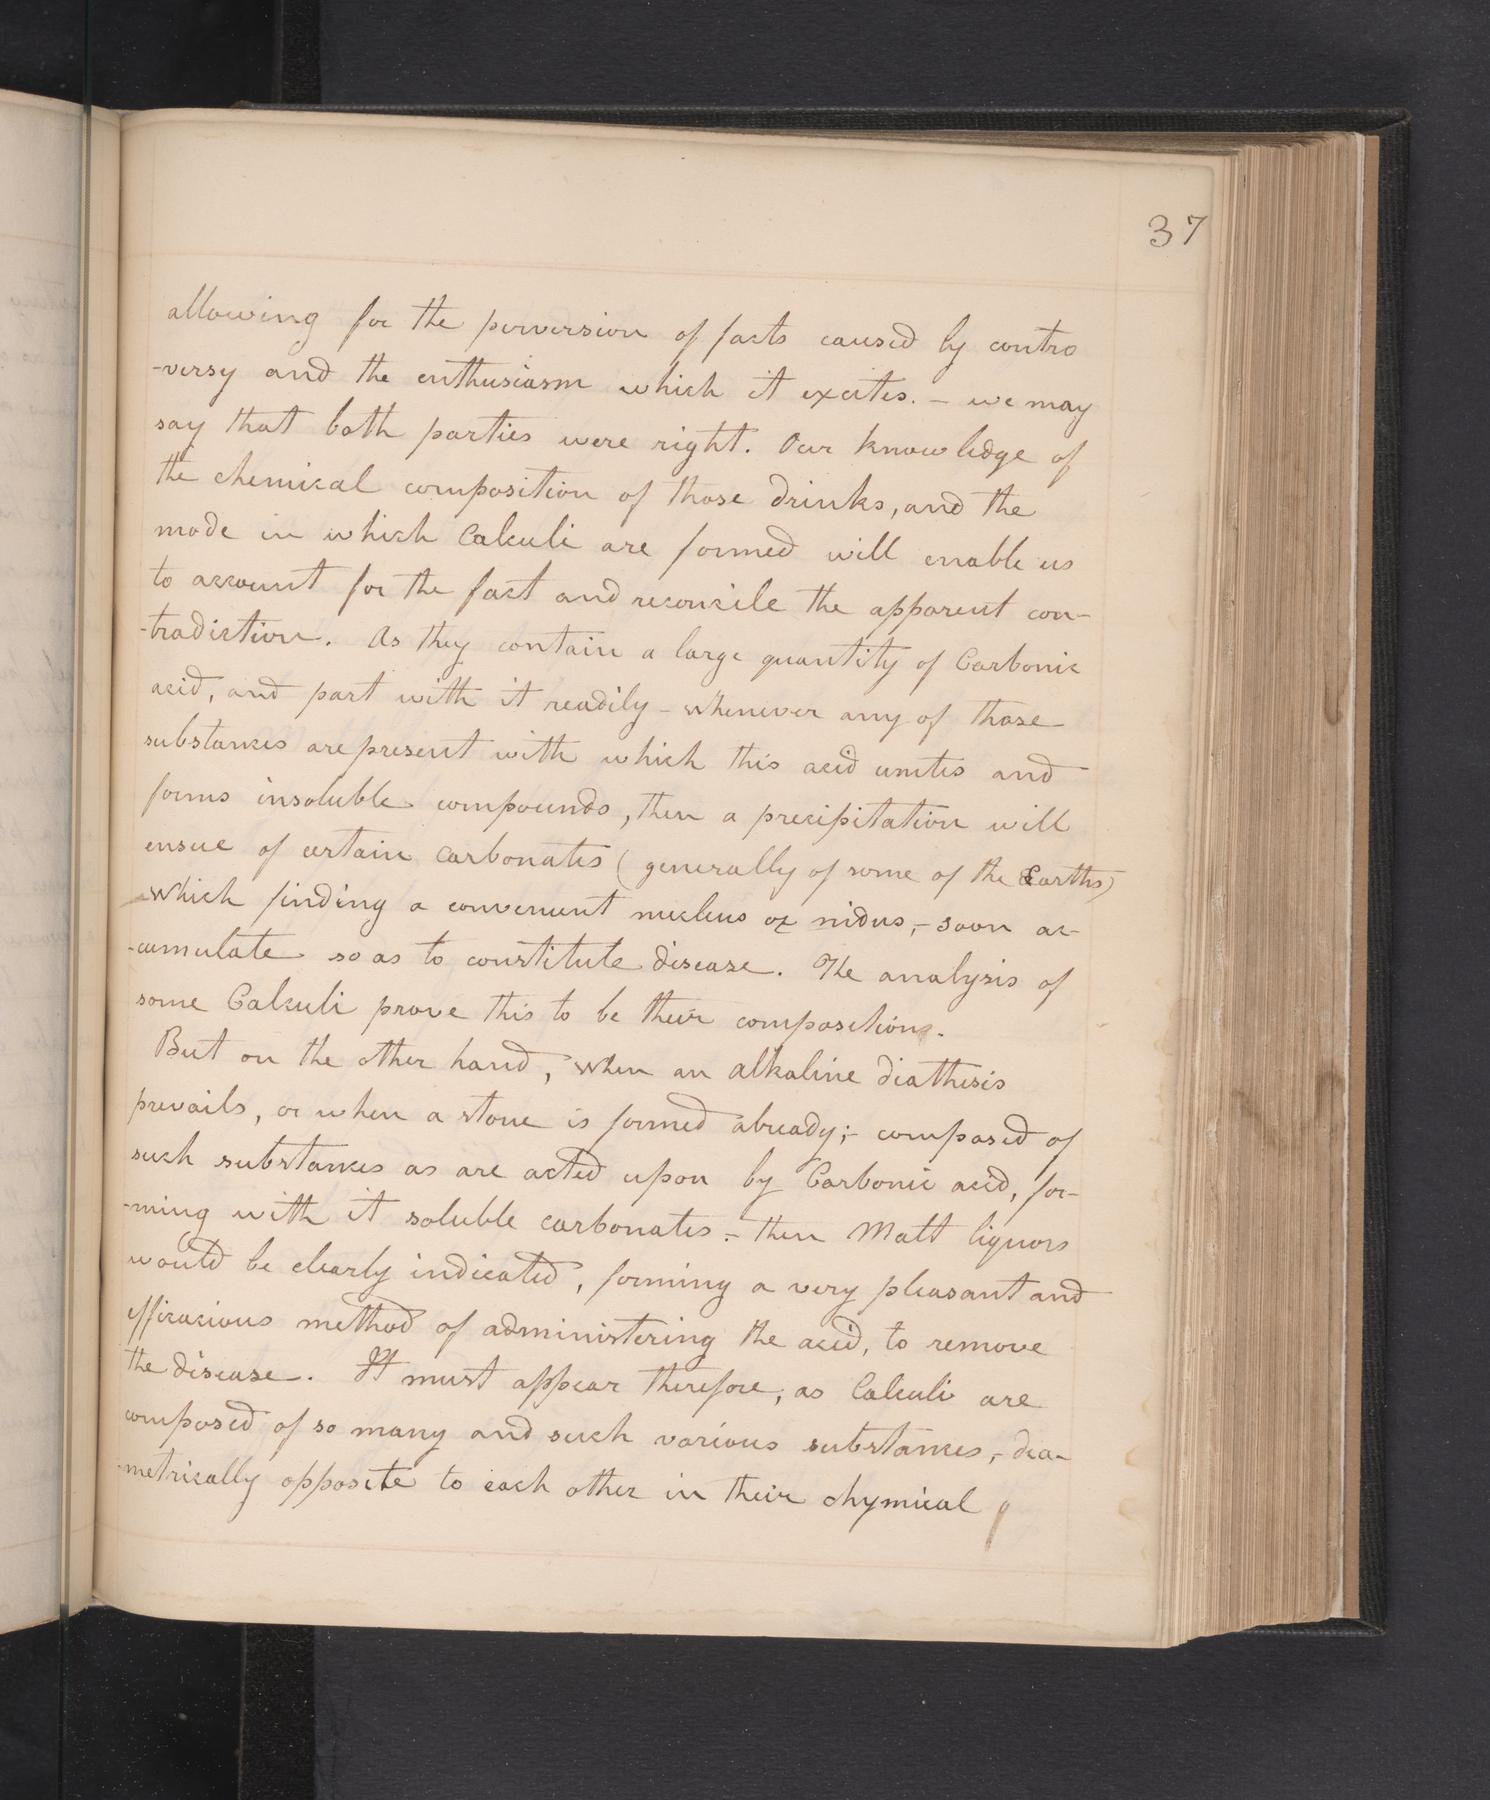 37
allowing for the perversion of facts caused by contro
-versy and the enthusiasm which it excites. - we may
say that both parties were right. Our knowledge of
the chemical composition of those drinks, and the
mode in which Calculi are formed will enable us
to account for the fact and reconcile the apparent con-
-tradiction. As they contain a large quantity of Carbonic
acid, and part with it readily - whenever any of those
substances are present with which this acid unites and
forms insoluble compounds, then a precipitation will
ensue of certain carbonates (generally of some of the Earths)
which finding a convenient nucleus or nidus, - soon ac-
-cumulate so as to constitute disease. The analysis of
some Calculi prove this to be their composition.
But on the other hand, when an alkaline diathesis
prevails, or when a stone is formed already; - composed of
such substances as are acted upon by Carbonic acid, for-
-ming with it soluble carbonates. - then Malt liquors
would be clearly indicated, forming a very pleasant and
efficacious method of administering the acid, to remove
the disease. It must appear therefore, as Calculi are
composed of so many and such various substances, - dia-
-metrically opposite to each other in their chymical